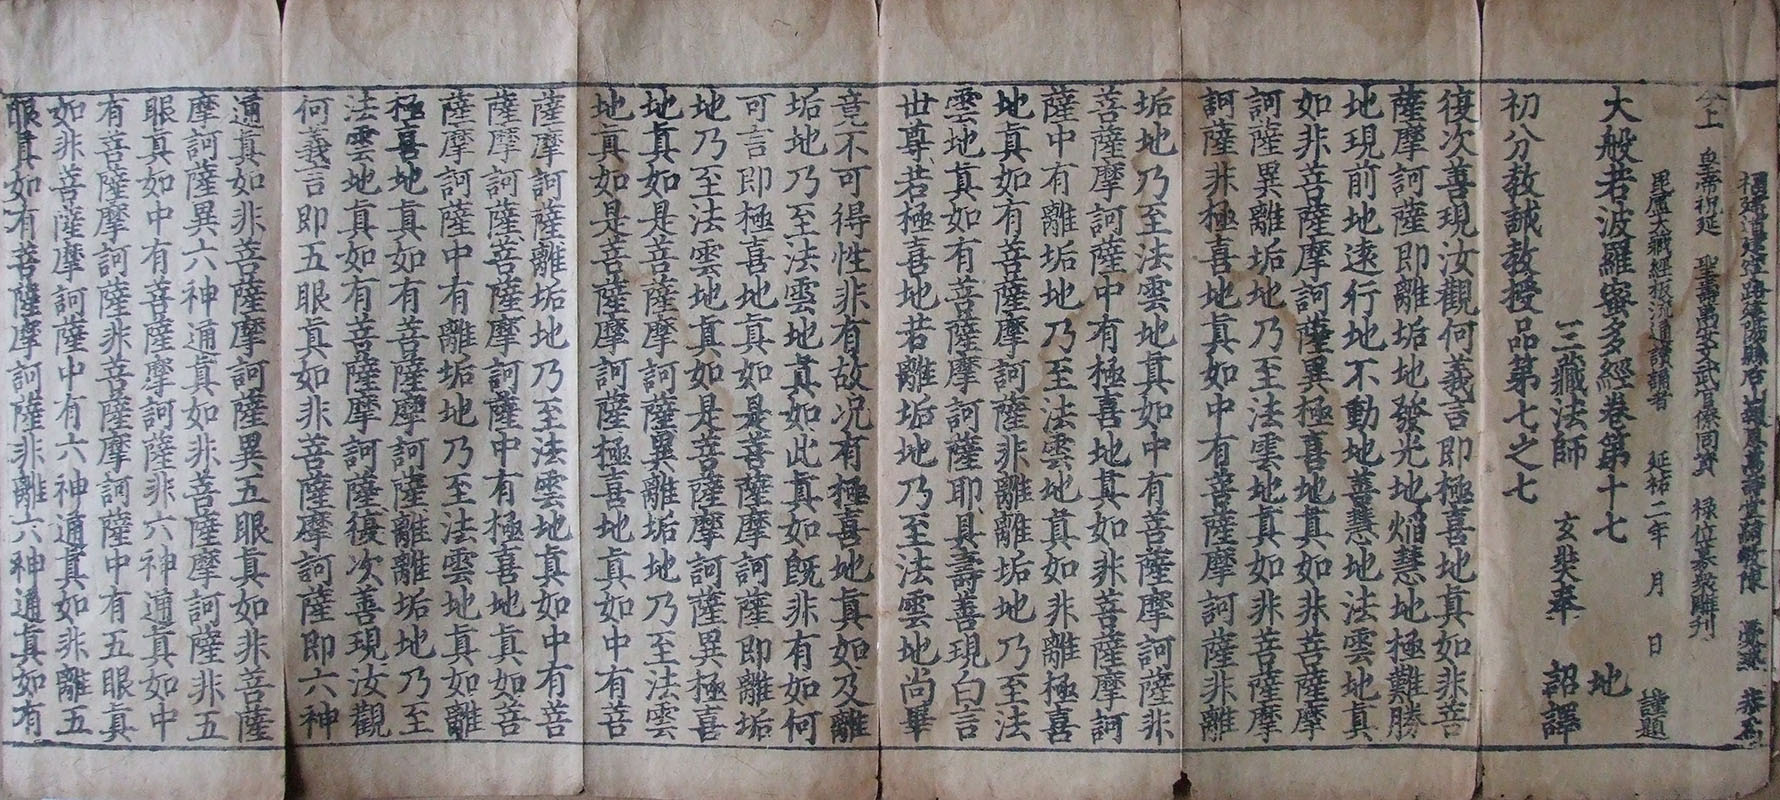 福建道建寧路建陽縣后山報恩萬壽堂嗣教陳 覺琳 恭為
今上 皇帝祝延 聖壽萬安文武官僚同資 禄位募衆雕刊
毘盧大藏經板流通讀誦者 延祐二年 月 日 謹題
大般若波羅蜜多經卷第十七 地
三藏法師 玄奘奉 詔譯
初分教誡教授品第七之七
復次善現汝觀何義言即極喜地真如非菩
薩摩訶薩即離垢地發光地焰慧地極難勝
地現前地遠行地不動地善慧地法雲地真
如非菩薩摩訶薩異極喜地真如非菩薩摩
訶薩異離垢地乃至法雲地真如非菩薩摩
訶薩非極喜地真如中有菩薩摩訶薩非離
垢地乃至法雲地真如中有菩薩摩訶薩非
菩薩摩訶薩中有極喜地真如非菩薩摩訶
薩中有離垢地乃至法雲地真如非離極喜
地真如有菩薩摩訶薩非離離垢地乃至法
雲地真如有菩薩摩訶薩耶具壽善現白言
世尊若極喜地若離垢地乃至法雲地尚畢
竟不可得性非有故况有極喜地真如及離
垢地乃至法雲地真如此真如既非有如何
可言即極喜地真如是菩薩摩訶薩即離垢
地乃至法雲地真如是菩薩摩訶薩異極喜
地真如是菩薩摩訶薩異離垢地乃至法雲
地真如是菩薩摩訶薩極喜地真如中有菩
薩摩訶薩離垢地乃至法雲地真如中有菩
薩摩訶薩菩薩摩訶薩中有極喜地真如菩
薩摩訶薩中有離垢地乃至法雲地真如離
極喜地真如有菩薩摩訶薩離離垢地乃至
法雲地真如有菩薩摩訶薩復次善現汝觀
何義言即五眼真如非菩薩摩訶薩即六神
通真如非菩薩摩訶薩異五眼真如非菩薩
摩訶薩異六神通真如非菩薩摩訶薩非五
眼真如中有菩薩摩訶薩非六神通真如中
有菩薩摩訶薩非菩薩摩訶薩中有五眼真
如非菩薩摩訶薩中有六神通真如非離五
眼真如有菩薩摩訶薩非離六神通真如有